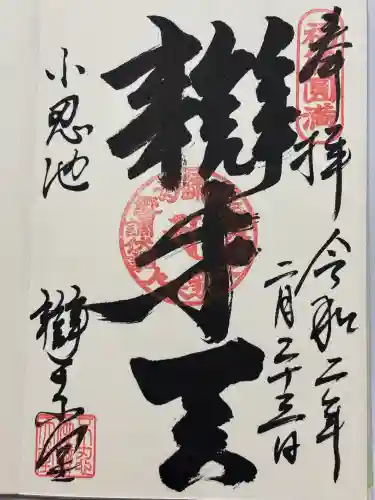 奉拝
令和二年
二月二十三日
辯才天
不忍池
辯天堂